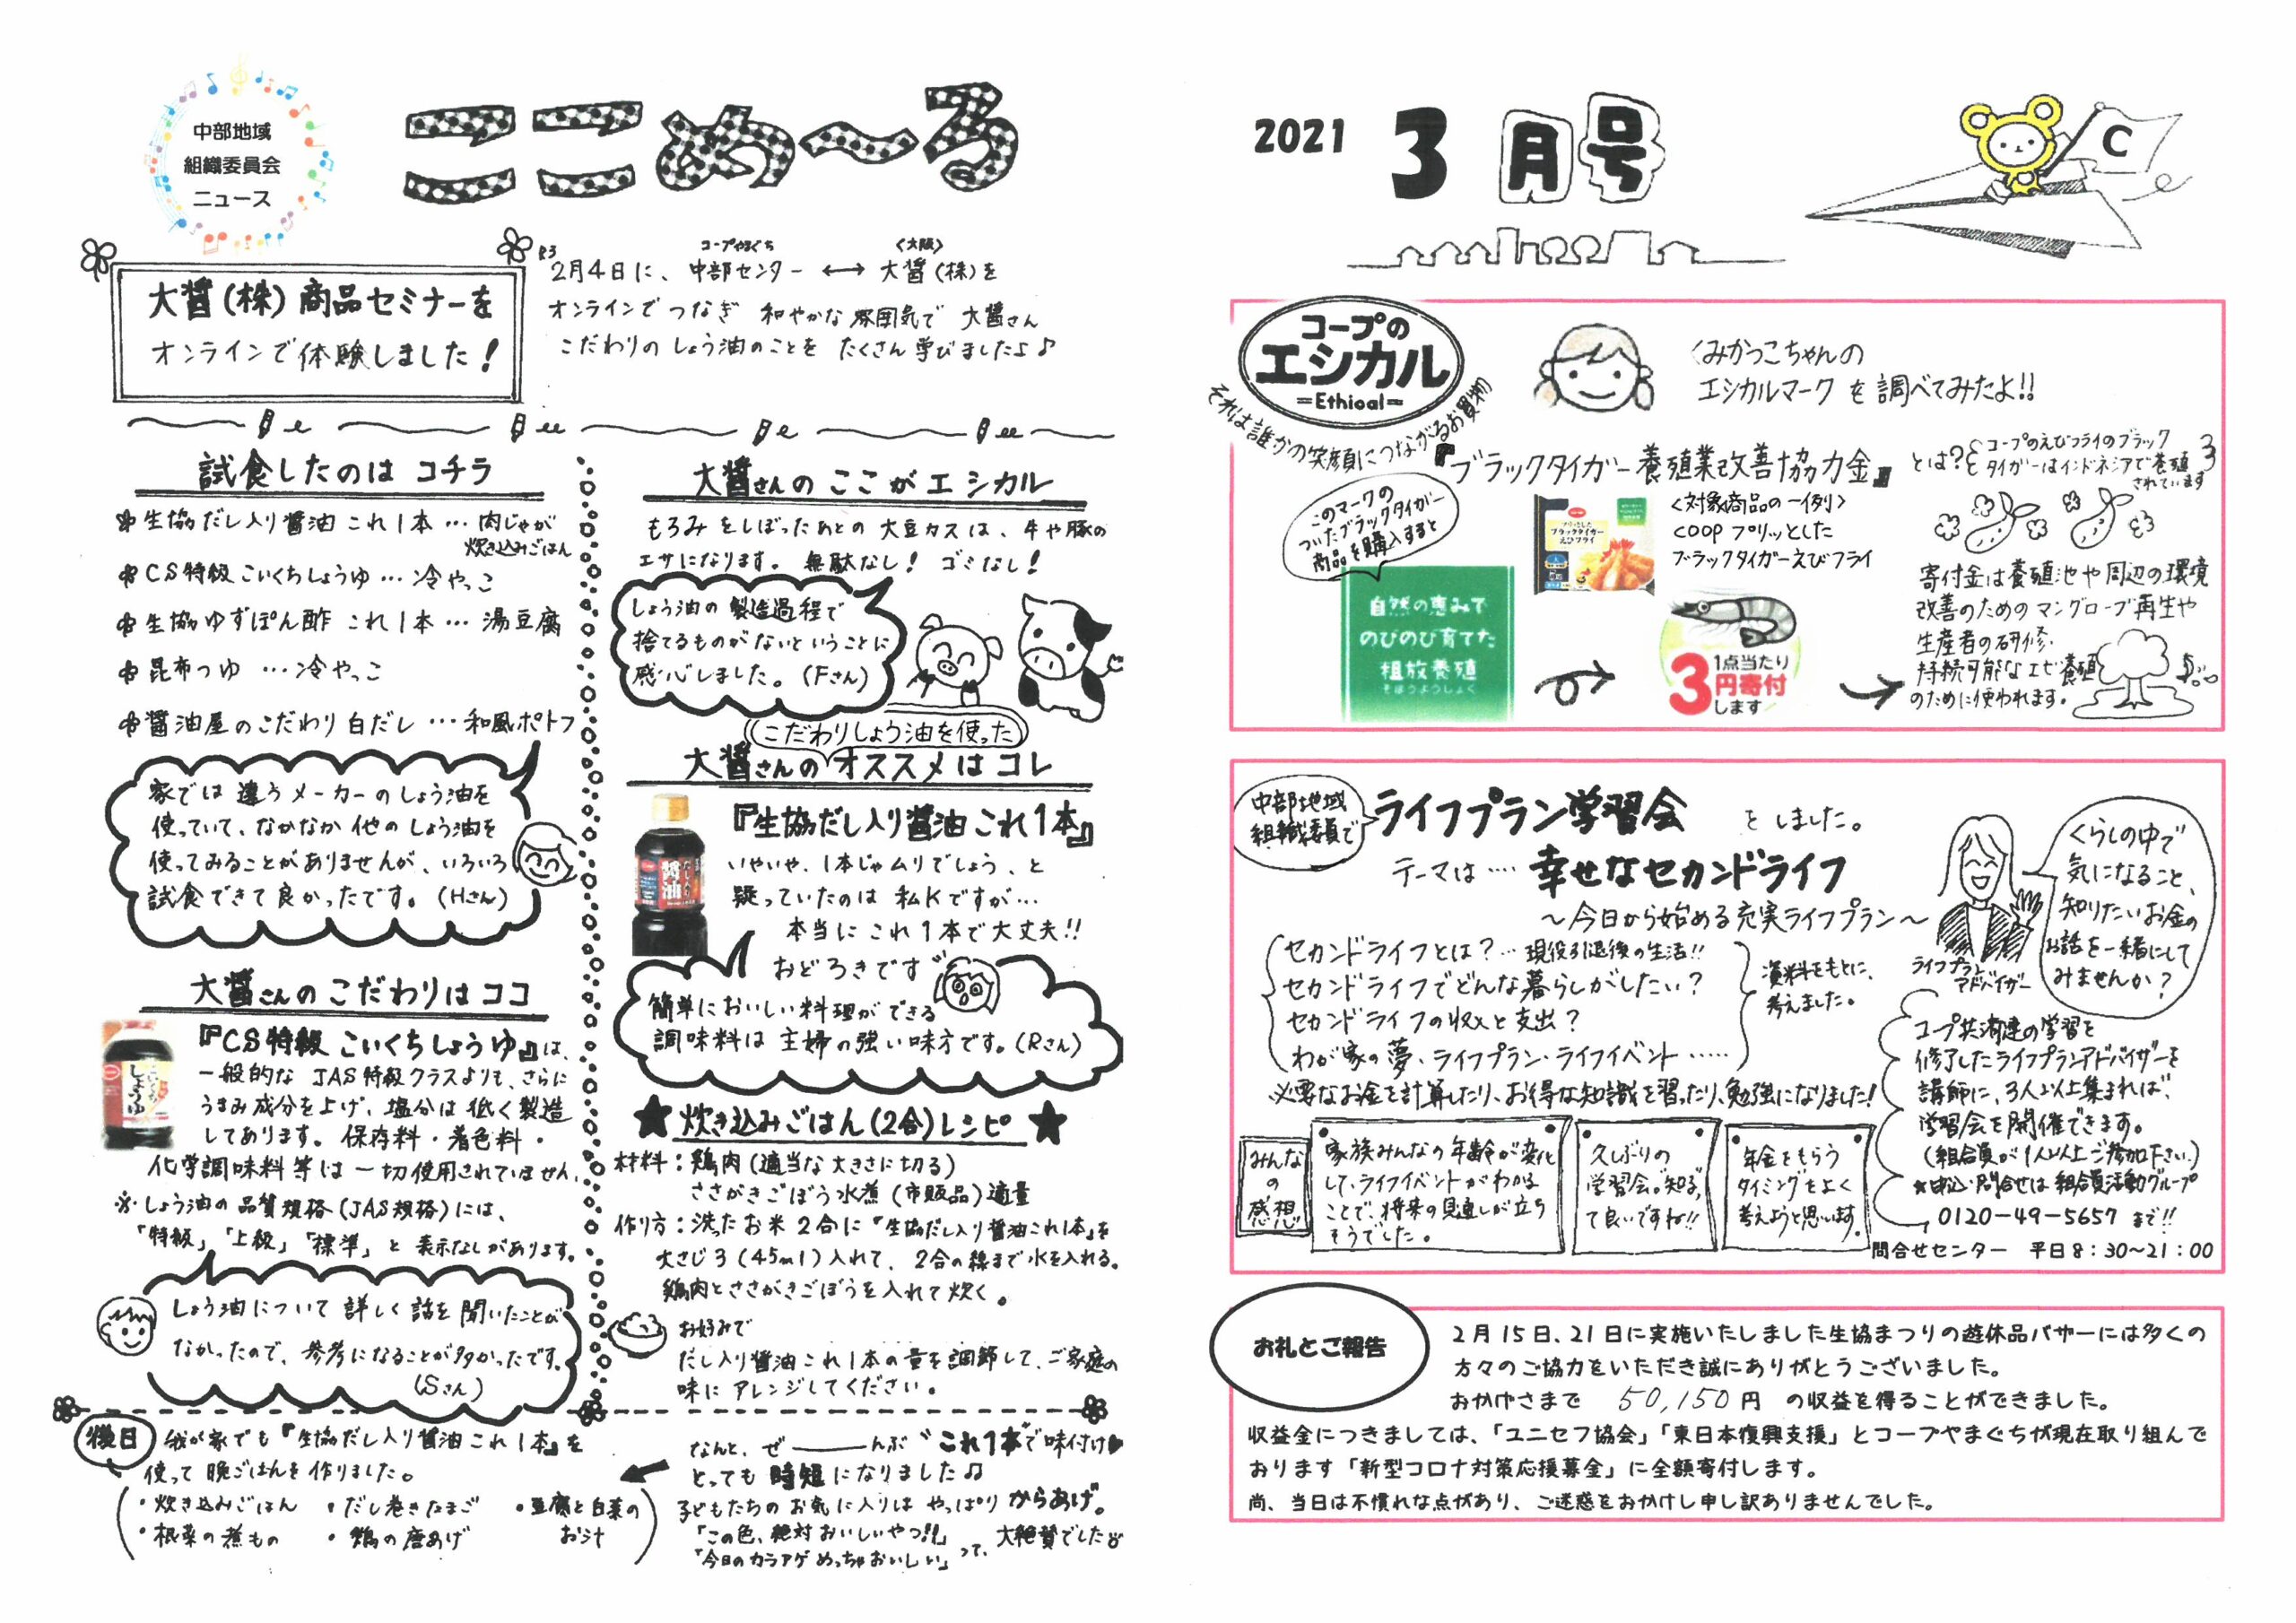 中部地域
組織委員会
ニュース
ここめ〜る
大醤(株)商品セミナーを
オンラインで体験しました!
R3
コープやまぐち
〈大阪〉
2月4日に、中部センター ↔ 大醤(株)を
オンラインでつなぎ 和やかな雰囲気で 大醤さん
こだわりのしょう油のことを たくさん学びましたよ♪
試食したのは コチラ
生協だし入り醤油 これ1本 … 肉じゃが
炊き込みごはん
CS特級 こいくちしょうゆ … 冷やっこ
生協ゆずぽん酢 これ1本 … 湯豆腐
昆布つゆ … 冷やっこ
醤油屋のこだわり白だし … 和風ポトフ
家では 違うメーカーのしょう油を
使っていて、なかなか 他のしょう油を
使ってみることがありませんが、いろいろ
試食できて良かったです。(Hさん)
大醤さんの こだわりは ココ
『CS特級 こいくちしょうゆ』は、
一般的な JAS特級クラスよりも、さらに
うまみ成分を上げ、塩分は低く製造
してあります。保存料・着色料・
化学調味料等は一切使用されていません。
※しょう油の品質規格(JAS規格)には、
「特級」「上級」「標準」と 表示なしがあります。
しょう油について 詳しく話を聞いたことが
なかったので、参考になることが多かったです。
(Sさん)
大醤さんの ここが エシカル
もろみをしぼったあとの 大豆カスは、牛や豚の
エサになります。無駄なし! ゴミなし!
しょう油の製造過程で
捨てるものがないということに
感心しました。(Fさん)
こだわりしょう油を使った
大醤さんの オススメは コレ
『生協だし入り醤油 これ1本』
いやいや、1本じゃムリでしょう、と
疑っていたのは 私Kですが…
本当に これ1本で大丈夫!!
おどろきです
簡単においしい料理ができる
調味料は 主婦の強い味方です。(Rさん)
★炊き込みごはん(2合)レシピ★
材料:鶏肉(適当な大きさに切る)
ささがきごぼう水煮(市販品)適量
作り方:洗ったお米2合に『生協だし入り醤油これ1本』を
大さじ3(45ml)入れて、2合の線まで水を入れる。
鶏肉とささがきごぼうを入れて炊く。
お好みで
だし入り醤油これ1本の量を調節して、ご家庭の
味にアレンジしてください。
後日
我が家でも『生協だし入り醤油 これ1本』を
使って 晩ごはんを作りました。
・炊き込みごはん ・だし巻きたまご ・豆腐と白菜の
お汁
・根菜の煮もの ・鶏の唐あげ
なんと、ぜ――んぶ "これ1本"で味付け
とっても 時短 になりました♫
子どもたちの お気に入りは やっぱり からあげ。
「この色、絶対おいしいやつ!!」
「今日のカラアゲ めっちゃおいしい」って、大絶賛でした
2021 3月号
C
コープの
エシカル
=Ethical=
それは誰かの笑顔につながるお買物
くみかつこちゃんの
エシカルマーク を調べてみたよ!!
『ブラックタイガー養殖業改善協力金』
とは?
コープのえびフライのブラック
タイガーはインドネシアで養殖
されています
このマークの
ついたブラックタイガー
商品を購入すると
〈対象商品の一例〉
COOP プリッとした
ブラックタイガーえびフライ
プリッとした
ブラックタイガー
えびフライ
自然の恵みで
のびのび育てた
粗放養殖
そほうようしょく
1点当たり
3円寄付
します
寄付金は養殖池や周辺の環境
改善のためのマングローブ再生や
生産者の研修・
持続可能なエビ養殖
のために使われます。
中部地域
組織委員で
ライフプラン学習会 をしました。
テーマは…. 幸せなセカンドライフ
〜今日から始める充実ライフプラン〜
セカンドライフとは?… 現役引退後の生活!!
セカンドライフでどんな暮らしがしたい?
セカンドライフの収入と支出?
わが家の夢・ライフプラン・ライフイベント……
資料をもとに、
考えました。
必要なお金を計算したり、お得な知識を習ったり、勉強になりました!
ライフプラン
アドバイザー
くらしの中で
気になること、
知りたいお金の
お話を一緒にして
みませんか?
コープ共済連の学習を
修了したライフプランアドバイザーを
講師に、3人以上集まれば、
学習会を開催できます。
(組合員が1人以上ご参加下さい。)
★申込・問合せは 組合員活動グループ
0120-49-5657 まで!!
問合せセンター 平日8:30〜21:00
みんな
の
感想
家族みんなの年齢が変化
して、ライフイベントがわかる
ことで、将来の見通しが立ち
そうでした。
久しぶりの
学習会。知るっ
て良いですね!!
年金をもらう
タイミングをよく
考えようと思います。
お礼とご報告
2月15日、21日に実施いたしました生協まつりの遊休品バザーには多くの
方々のご協力をいただき誠にありがとうございました。
おかげさまで 50,150円 の収益を得ることができました。
収益金につきましては、「ユニセフ協会」「東日本復興支援」とコープやまぐちが現在取り組んで
おります「新型コロナ対策応援募金」に全額寄付します。
尚、当日は不慣れな点があり、ご迷惑をおかけし申し訳ありませんでした。